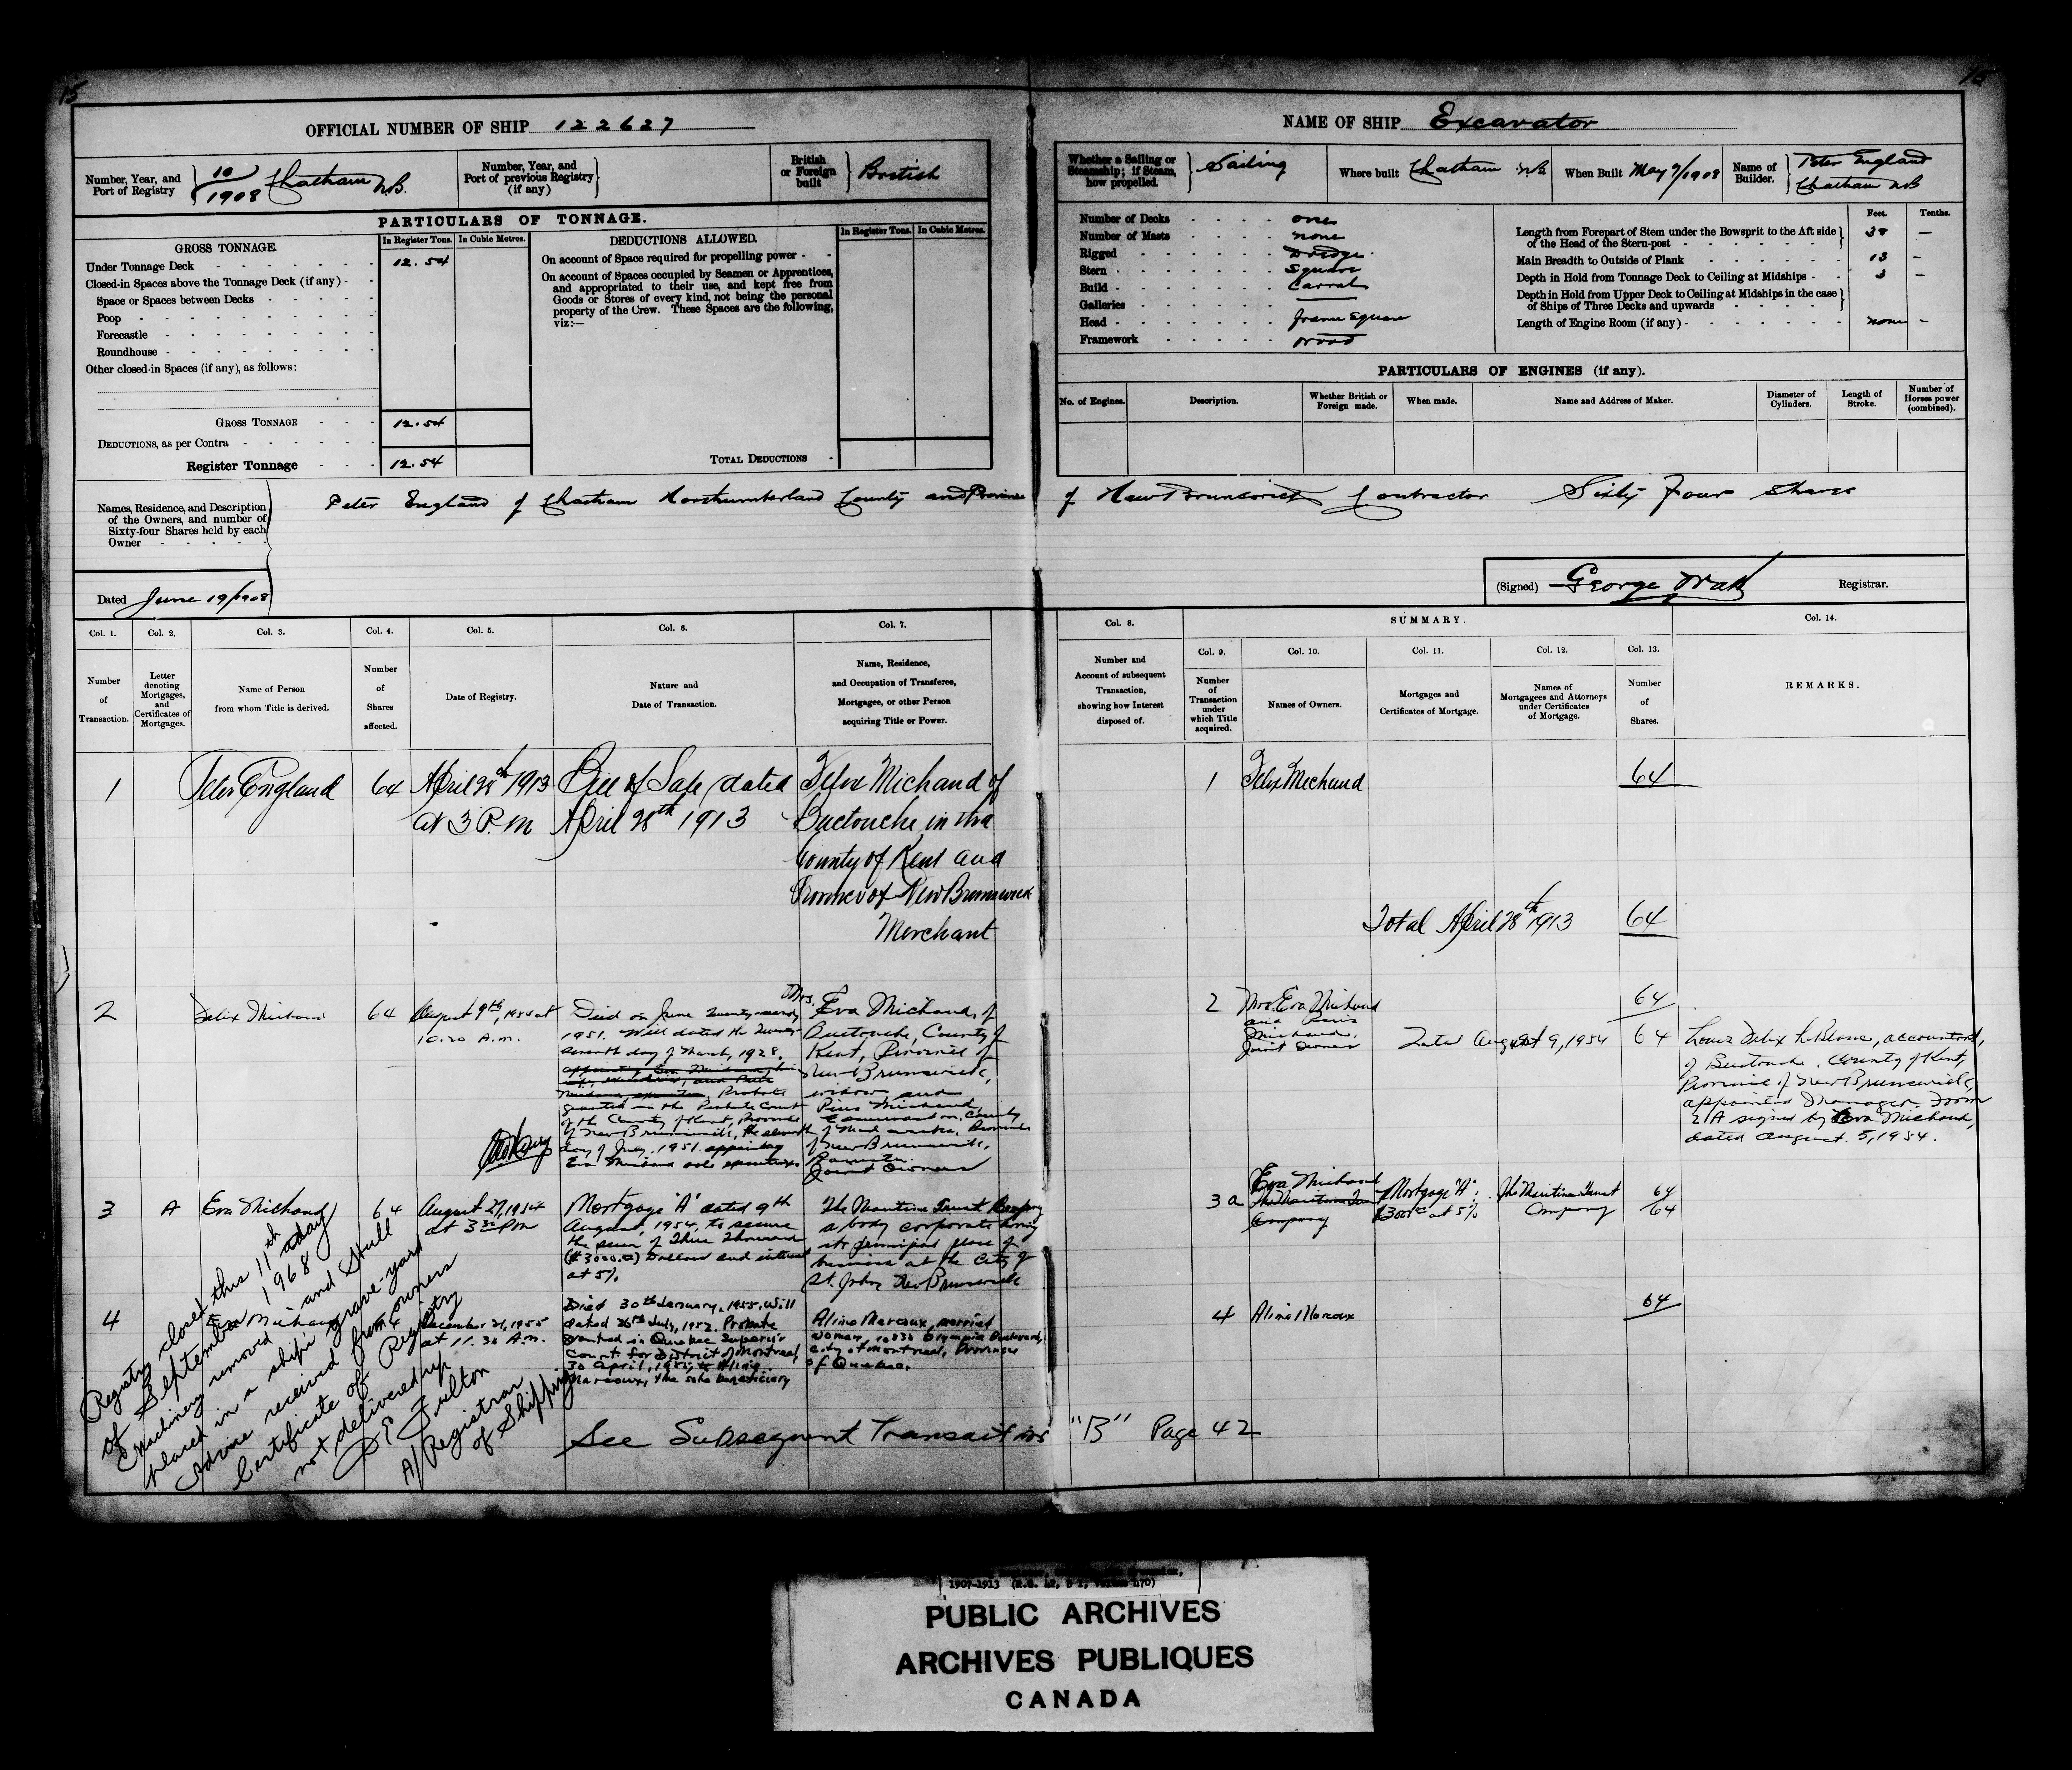 15
OFFICIAL NUMBER OF SHIP 122627
Number, Year, and Port of Registry 10/1908 Chatham N.B.
Number, Year, and Port of previous Registry (if any)
British or Foreign built British
PARTICULARS OF TONNAGE.
GROSS TONNAGE.
In Register Tons. In Cubic Metres.
DEDUCTIONS ALLOWED.
In Register Tons. In Cubic Metres.
Under Tonnage Deck 12.54
Closed-in Spaces above the Tonnage Deck (if any)
Space or Spaces between Decks
Poop
Forecastle
Roundhouse
Other closed-in Spaces (if any), as follows:
GROSS TONNAGE 12.54
DEDUCTIONS, as per Contra
Register Tonnage 12.54
On account of Space required for propelling power
On account of Spaces occupied by Seamen or Apprentices,
and appropriated to their use, and kept free from
Goods or Stores of every kind, not being the personal
property of the Crew. These Spaces are the following,
viz:—
TOTAL DEDUCTIONS
NAME OF SHIP Excavator
Whether a Sailing or Steamship; if Steam, how propelled. Sailing
Where built Chatham N.B.
When Built May 7/1908
Name of Builder. Peter England
Chatham NB
Number of Decks one
Number of Masts none
Rigged Dredge.
Stern Square
Build Carval
Galleries
Head frame square
Framework Wood
Feet. Tenths.
Length from Forepart of Stem under the Bowsprit to the Aft side of the Head of the Stern-post 38 —
Main Breadth to Outside of Plank 13 —
Depth in Hold from Tonnage Deck to Ceiling at Midships 3 —
Depth in Hold from Upper Deck to Ceiling at Midships in the case of Ships of Three Decks and upwards
Length of Engine Room (if any) none -
PARTICULARS OF ENGINES (if any).
No. of Engines. Description. Whether British or Foreign made. When made. Name and Address of Maker. Diameter of Cylinders. Length of Stroke. Number of Horses power (combined).
Names, Residence, and Description
of the Owners, and number of
Sixty-four Shares held by each
Owner
Peter England of Chatham Northumberland County and Province of New Brunswick Contractor Sixty Four Shares
Dated June 19/1908
(Signed) George Watt Registrar.
Col. 1. Col. 2. Col. 3. Col. 4. Col. 5. Col. 6. Col. 7. Col. 8. SUMMARY. Col. 14.
Col. 9. Col. 10. Col. 11. Col. 12. Col. 13.
Number of Transaction.
Letter denoting Mortgages, and Certificates of Mortgages.
Name of Person from whom Title is derived.
Number of Shares affected.
Date of Registry.
Nature and Date of Transaction.
Name, Residence, and Occupation of Transferee, Mortgagee, or other Person acquiring Title or Power.
Number and Account of subsequent Transaction, showing how Interest disposed of.
Number of Transaction under which Title acquired.
Names of Owners.
Mortgages and Certificates of Mortgage.
Names of Mortgagees and Attorneys under Certificates of Mortgage.
Number of Shares.
REMARKS.
1 Peter England 64 April 28th 1913 Bill of Sale dated Felix Michaud of
at 3 P.M April 28th 1913 Buctouche in the
County of Kent and
Province of New Brunswick
Merchant
1 Felix Michaud 64
Total April 28th 1913 64
2 Felix Michaud 64 August 9th, 1954 at
10.20 A.m.
Died on June twenty-
1951. Will dated the twenty-
seventh day of March, 1928,
appointing Eva Michaud, his
Probate
granted in the Probate Court
of the County of Kent, Province
of New Brunswick, the eleventh
day of July, 1951 appointing
Eva Michaud sole executrix
Mrs. Eva Michaud, of
Buctouche, County of
Kent, Province of
New Brunswick,
widow, and
Pius Michaud,
Edmundston, County
of Madawaska, Province
of New Brunswick,
Barrister.
Joint Owners
2 Mrs. Eva Michaud 64
and Pius
Michaud,
Joint Owners
Total August 9, 1954 64
Louis Felix LeBlanc, accountant,
of Buctouche, County of Kent,
Province of New Brunswick,
appointed Manager. Form
signed by Eva Michaud,
dated August 5, 1954.
3 A Eva Michaud 64 August 27, 1954
at 3 30 PM
Mortgage "A" dated 9th
August, 1954, to secure
the sum of Three Thousand
($3000.00) Dollars and interest
at 5%
The Maritime Trust Company
a body corporate having
its principal place of
business at the City of
St. John, New Brunswick
3a Eva Michaud
The Maritime Trust
Company
Mortgage "A":
$3000 at 5%
The Maritime Trust
Company
64
64
4 Eva Michaud 64 December 21, 1955
at 11.30 A.m.
Died 30th January, 1955, Will
dated 26th July, 1952. Probate
granted in Quebec Superior
Court for District of Montreal,
30 April, 1955, to Aline
Marcoux, the sole beneficiary
Aline Marcoux, married
woman, 10830 Olympia Boulevard,
City of Montreal, Province
of Quebec.
4 Aline Marcoux 64
Registry closed this 11th day
of September 1968
Machinery removed and Hull
placed in a ship's grave-yard
Advice received from owners
Certificate of Registry
not delivered up
D E Fulton
A/Registrar
of Shipping
See Subsequent Transactions "B" Page 42
1907-1913
PUBLIC ARCHIVES
ARCHIVES PUBLIQUES
CANADA